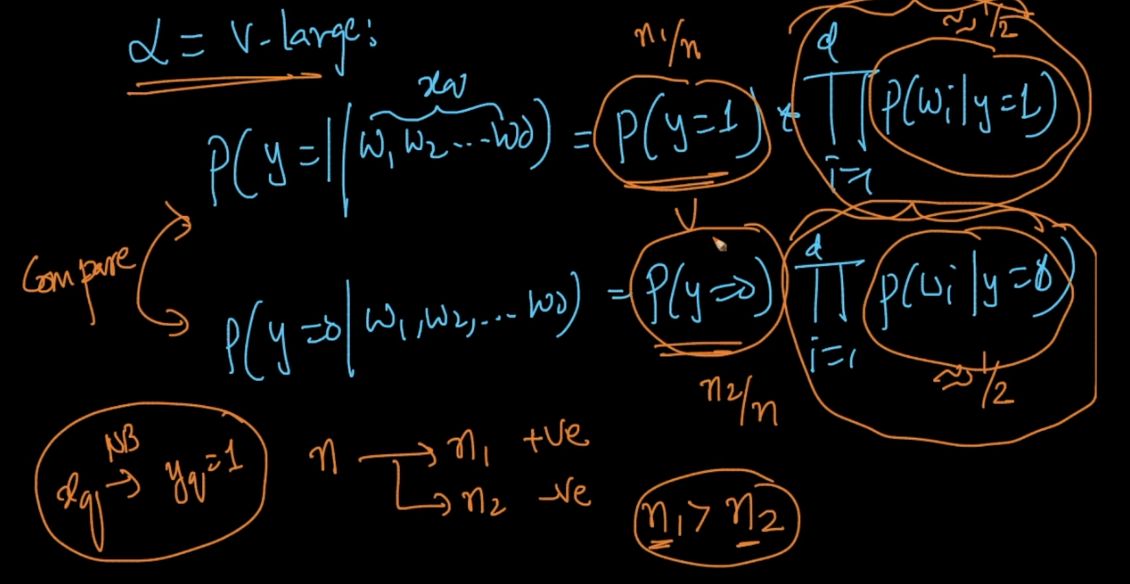 α = V-large:
n1/n
≈ 1/2
xq
P(y=1|w1,w2...wd) = P(y=1) * ∏ᵈᵢ₌₁ P(wi|y=1)
Compare
P(y=0|w1,w2,...wd) = P(y=0) ∏ᵈᵢ₌₁ P(wi|y=0)
n2/n
≈ 1/2
NB
xq → yq=1
n → n1 +ve
→ n2 -ve
n1 > n2